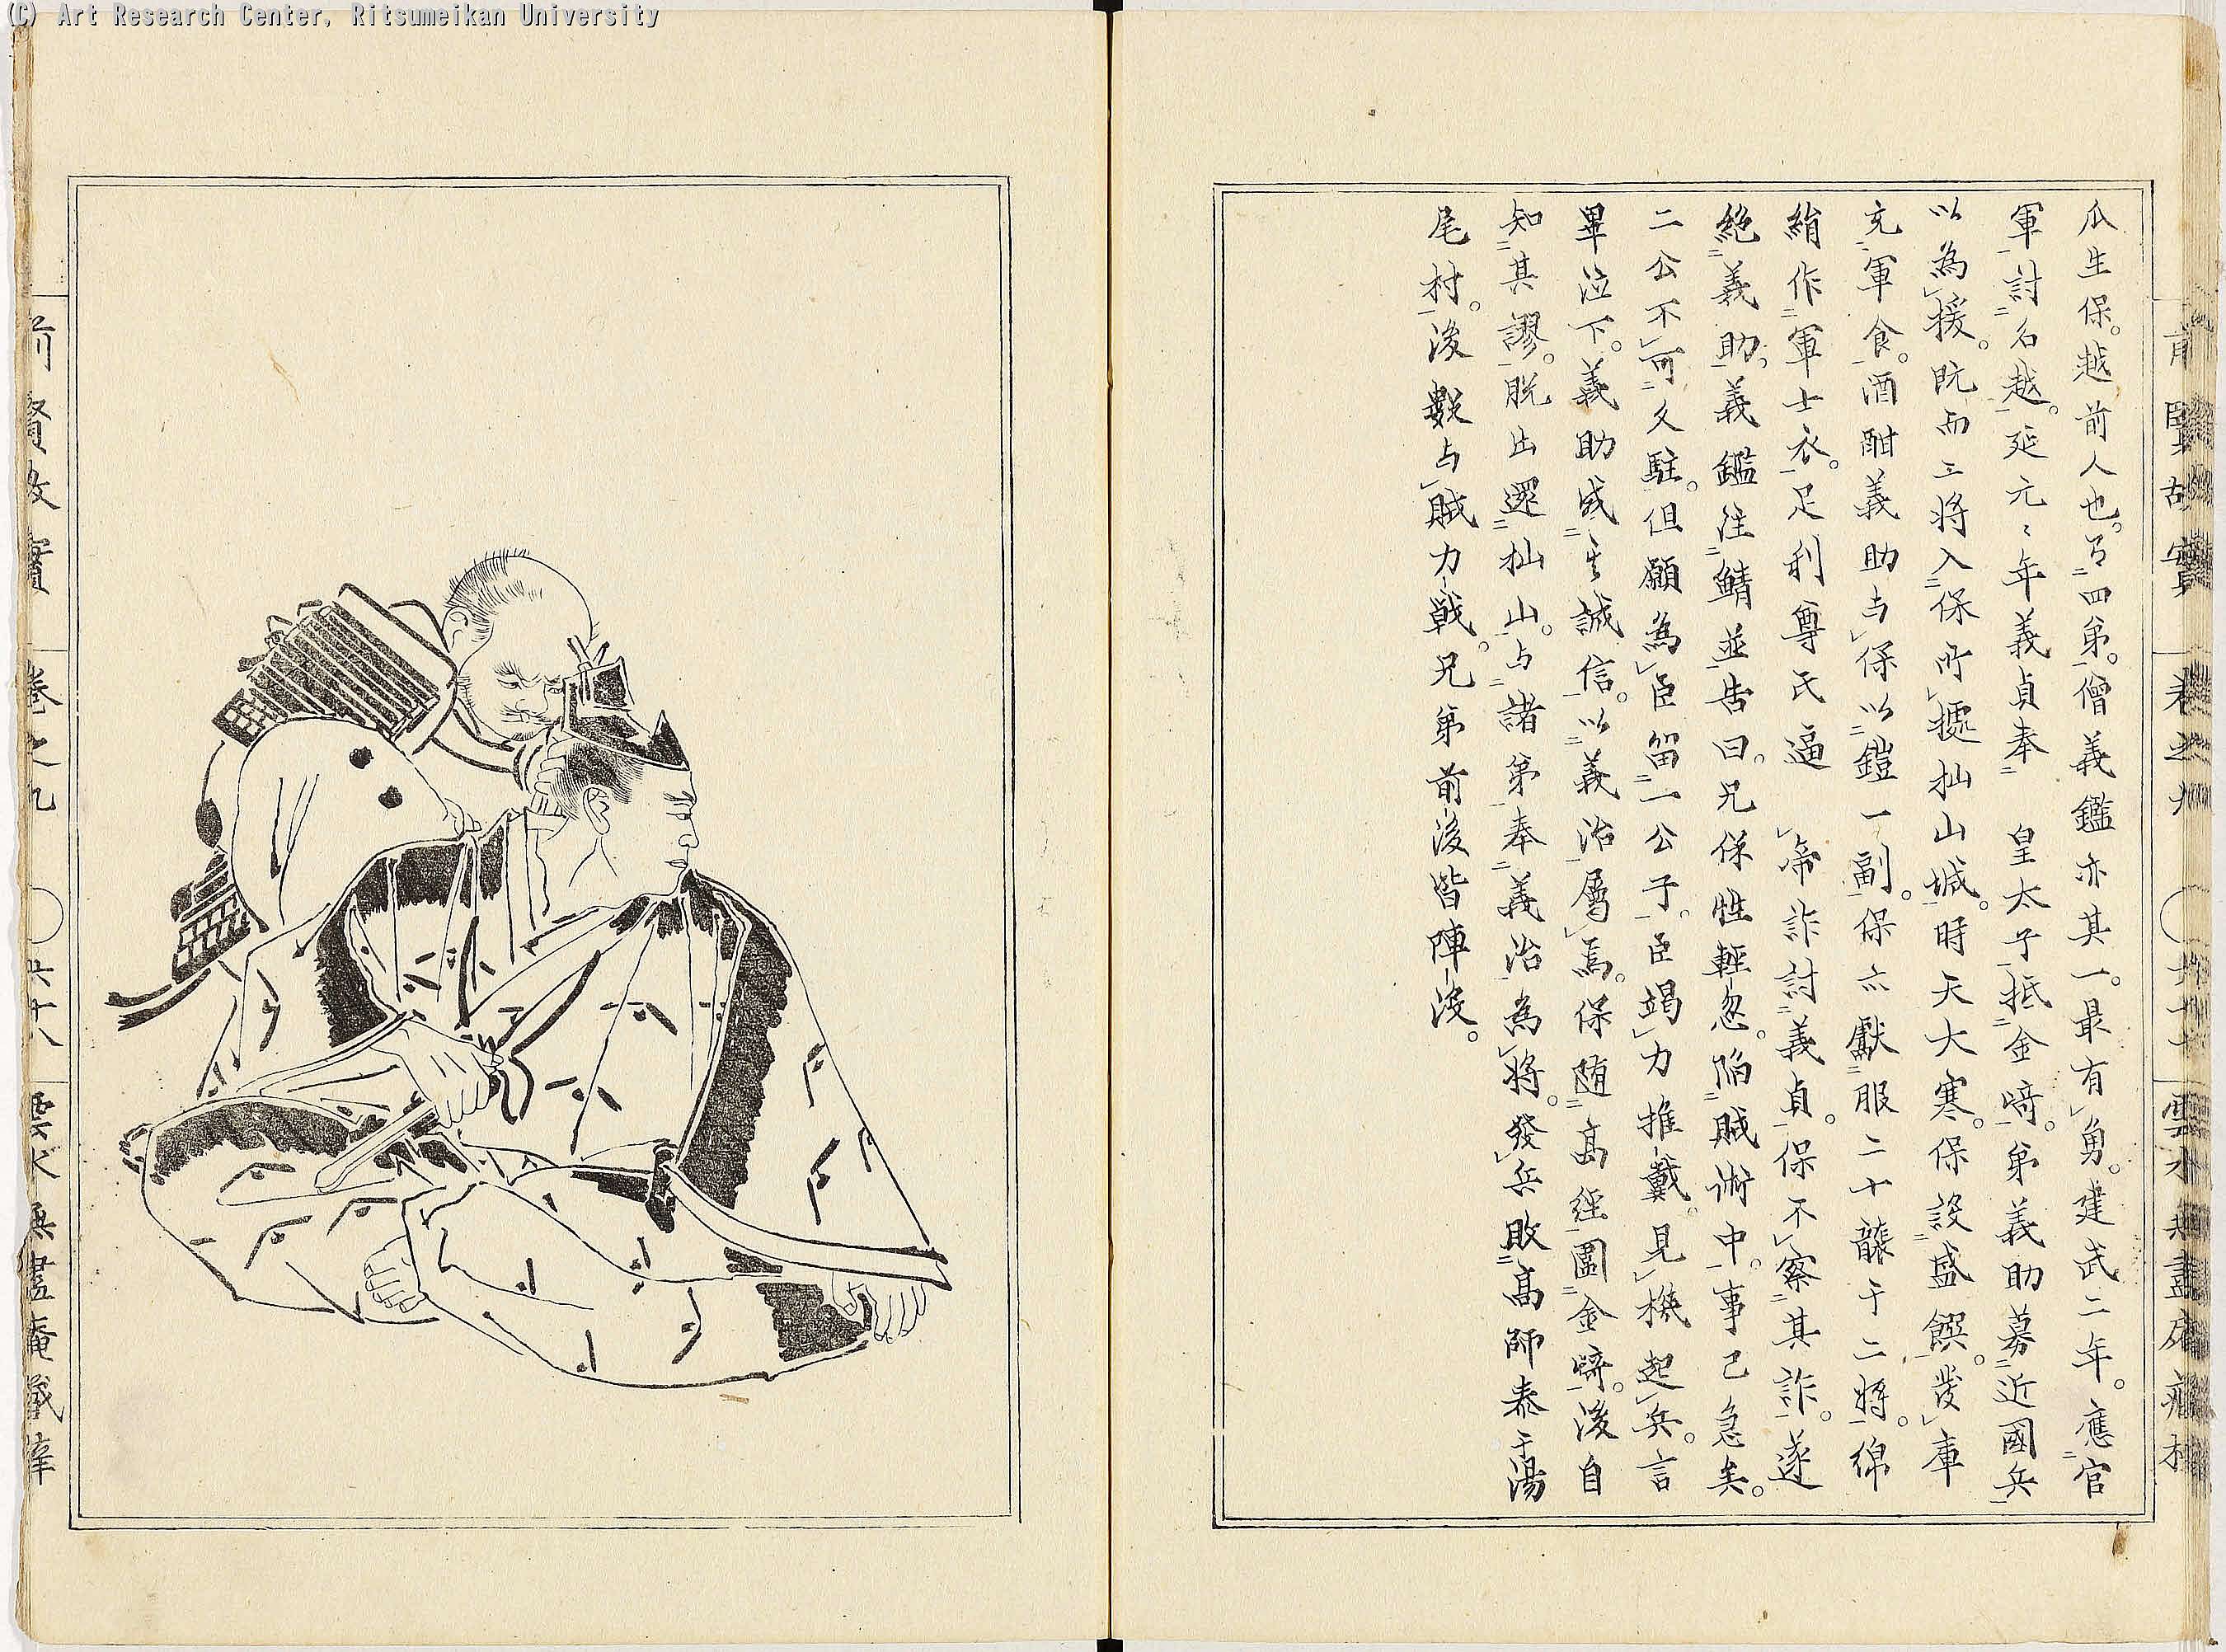 (C) Art Research Center, Ritsumeikan University
瓜生保。越前人也。有四弟。僧義鑑亦其一。最有勇。建武二年。應官
軍討名越。延元々年義貞奉 皇太子抵金﨑。弟義助募近國兵
以為援。既而二將入保所據杣山城。時天大寒。保設盛饌。發庫
充軍食。酒酣義助与保以鎧一副。保亦獻服二十襲于二將。綿
絹作軍士衣。足利尊氏逼 帝詐討義貞。保不察其詐。遂
絶義助。義鑑往鯖並告曰。兄保性輕忽。陥賊術中。事已急矣。
二公不可久駐。但願為臣留一公子。臣竭力推戴。見機起兵。言
畢泣下。義助感其誠信。以義治属焉。保随高經圍金﨑。後自
知其謬。脱出還杣山。与諸弟奉義治為將。發兵敗高師泰于湯
尾村。後數与賊力戦。兄弟前後皆陣没。
前賢故實
卷之九
六十八
雲水無盡庵藏梓